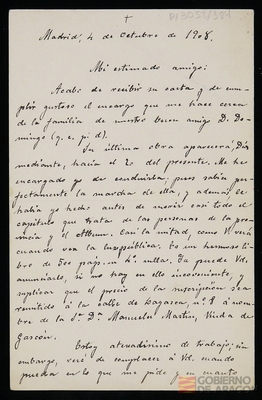 +
Madrid, 4 de Octubre de 1908.
Mi estimado amigo:
Acabo de recibir su carta y de cumplir
gustoso el encargo que me hace cerca
de la familia de nuestro buen amigo D. Domingo
(q. e. p. d.).
Su última obra aparecerá, Dios
mediante, hacia el 20 del presente. Me he
encargado yo de concluirla, pues sabía perfectamente
la marcha de ella, y además él
había ya hecho antes de morir casi todo el
capítulo que trata de las personas de la provincia
y el Album. Casi la mitad, como V. verá
cuando vea la luz pública. Es un hermoso libro
de 700 pág. en 4º mlla. Ya puede Vd.
anunciarlo, si no hay en ello inconveniente, y
suplicar que el precio de la suscripción sea
remitido á la calle de Lagasca, nº 8 á nombre
de la Sra. Dª Manuela Martín, Viuda de
Gascón.
Estoy atareadísimo de trabajo; sin
embargo, veré de complacer á Vd. cuando
pueda en lo que me pide y en cuanto
GOBIERNO
DE ARAGON